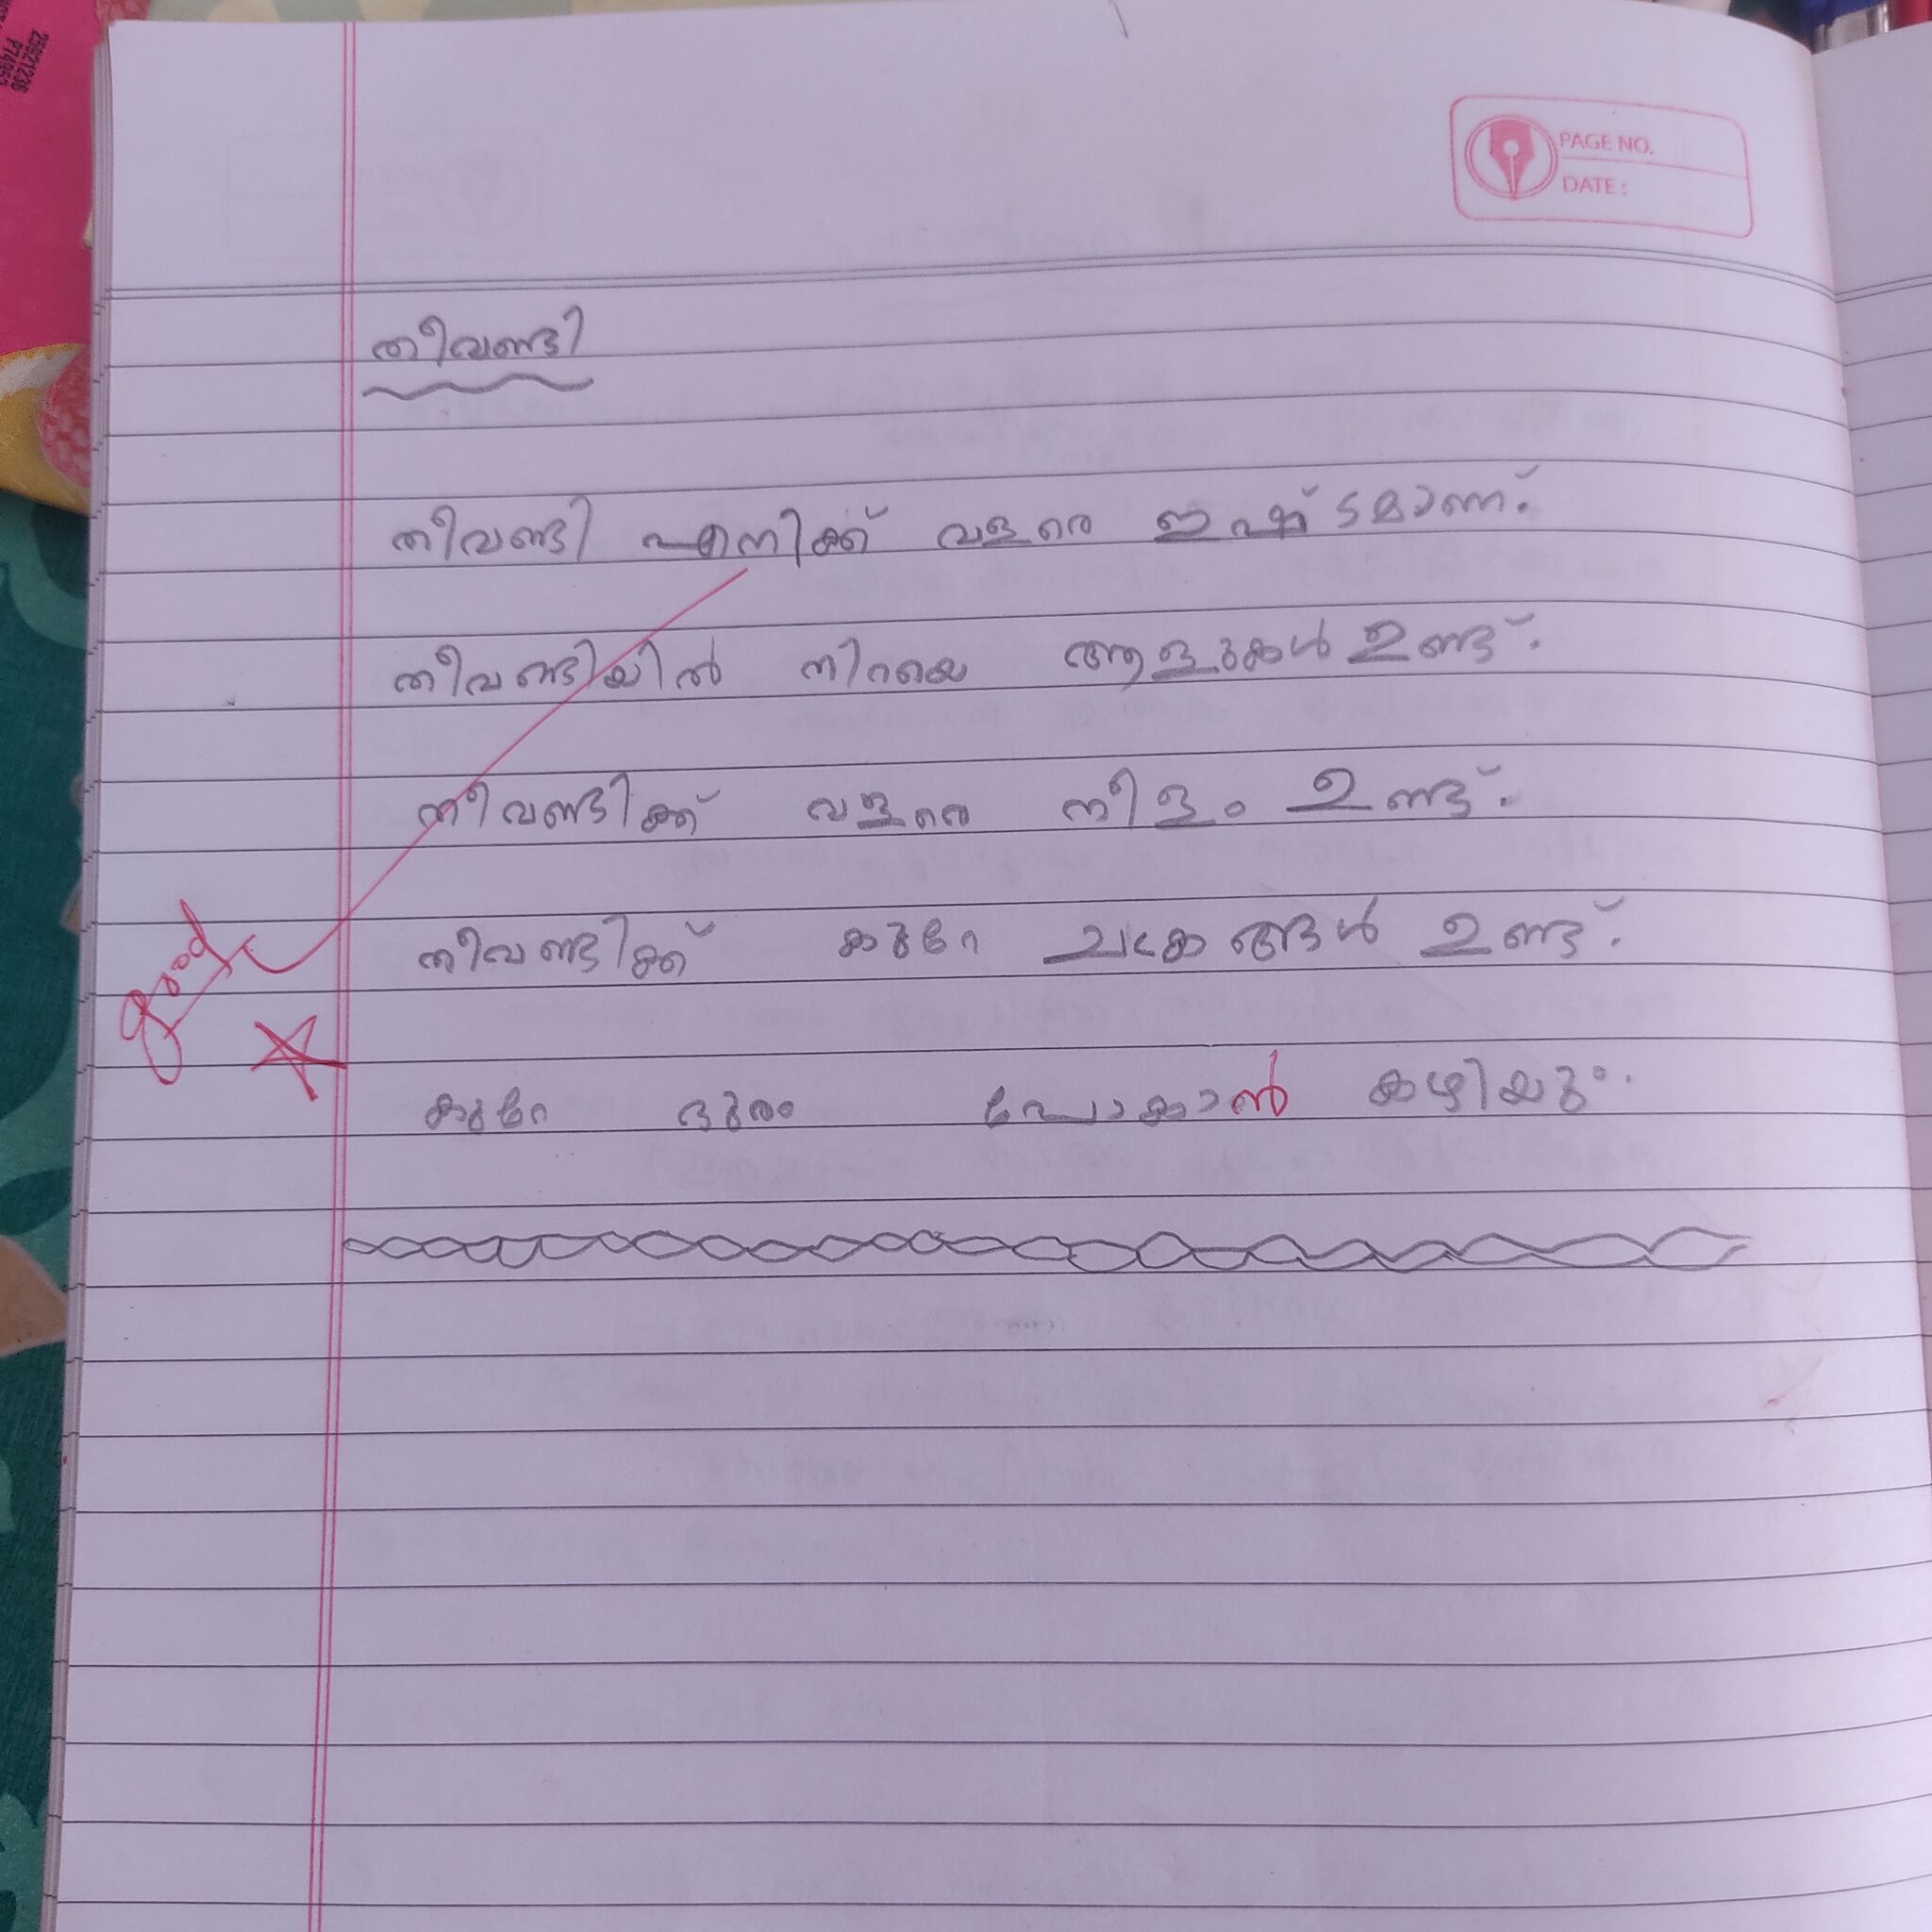 25921236
PAGE NO.
DATE :
തീവണ്ടി
തീവണ്ടി എനിക്ക് വളരെ ഇഷ്ടമാണ്.
തീവണ്ടിയിൽ നിറയെ ആളുകൾ ഉണ്ട്.
തീവണ്ടിക്ക് വളരെ നീളം ഉണ്ട്.
തീവണ്ടിക്ക് കുറേ ചക്രങ്ങൾ ഉണ്ട്.
good
കുറേ ദുരം പോകാൻ കഴിയും.